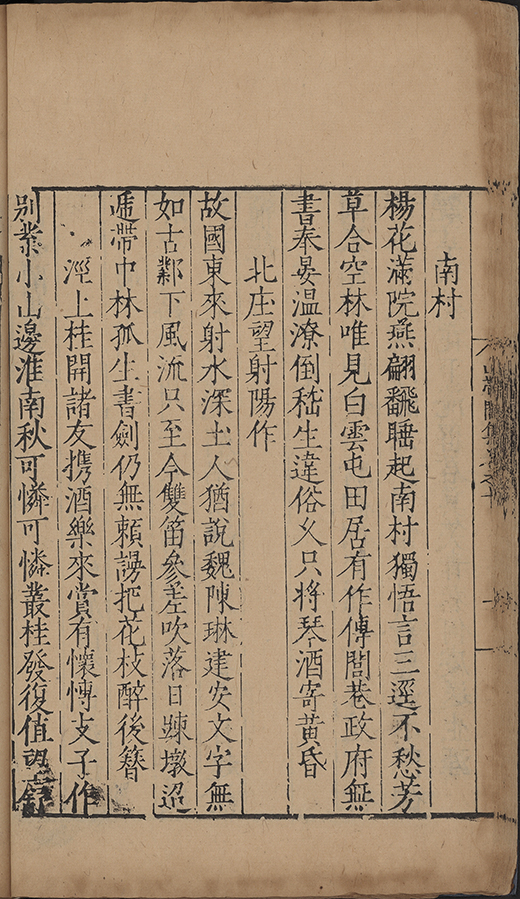 南村
楊花滿院燕翩飜睡起南村獨悟言三逕不愁芳
草合空林唯見白雲屯田居有作傳閭巷政府無
書奉晏溫潦倒嵇生違俗久只将琴酒寄黄昏
北庄望射陽作
故國東來射水深土人猶說魏陳琳建安文字無
如古鄴下風流只至今雙笛參差吹落日踈墩迢
逓帶中林孤生書劍仍無頼謾把花枝醉後簪
涇上桂開諸友携酒樂來賞有懷博支子作
别業小山邊淮南秋可憐可憐叢桂發復值望